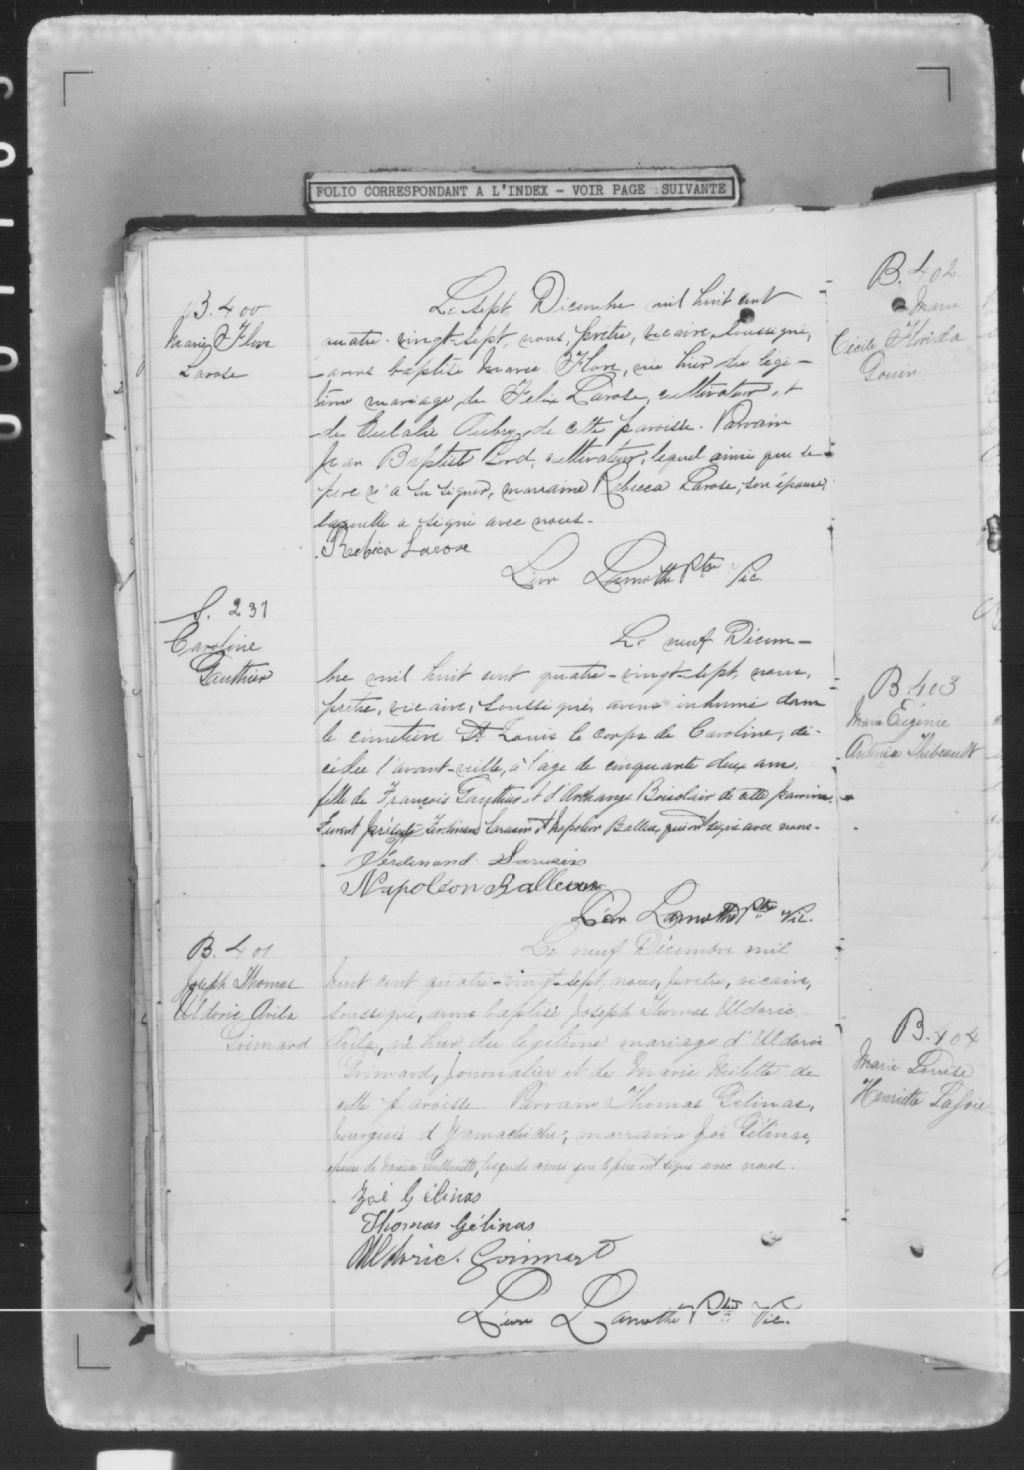 FOLIO CORRESPONDANT A L'INDEX - VOIR PAGE SUIVANTE
B. 400
Marie Flore
Larose
Le sept Décembre mil huit cent
quatre-vingt-sept, nous, prêtre, vicaire, soussigné,
avons baptisé Marie Flore, née hier du légi-
time mariage de Felix Larose, cultivateur, et
de Eulalie Aubry, de cette paroisse. Parrain
Jean Baptiste Lord, cultivateur, lequel ainsi que le
père n'a su signer, marraine Rebecca Larose, son épouse,
laquelle a signé avec nous.
Rebeca Larose
Léon Lamothe Ptre Vic.
S. 231
Caroline
Gauthier
Le neuf Décem-
bre mil huit cent quatre-vingt-sept, nous,
prêtre, vicaire, soussigné, avons inhumé dans
le cimetière St Louis le corps de Caroline, dé-
cédée l'avant-veille, à l'age de cinquante deux ans,
fille de François Gauthier et d'Archange Boisclair de cette paroisse.
Furent présents Ferdinand Sarasin et Napoléon Balleux qui ont signé avec nous.
Ferdinand Sarasin
Napoléon Balleux
Léon Lamothe Ptre Vic.
B. 401
Joseph Thomas
Uldoric Avila
Grimard
Le neuf Décembre mil
huit cent quatre-vingt-sept, nous, prêtre, vicaire,
soussigné, avons baptisé Joseph Thomas Uldoric
Avila, né hier du légitime mariage d'Uldoric
Grimard, journalier et de Marie Milette de
cette paroisse. Parrain Thomas Gélinas,
bourgeois d'Yamachiche, marraine Zoé Gélinas,
épouse de lesquels ainsi que le père ont signé avec nous.
Zoé Gélinas
Thomas Gélinas
Uldoric Grimard
Léon Lamothe Ptre Vic.
B. 402
Marie
Cécile Florida
Gouin
B. 403
Marie Eugénie
Antonia Thibeault
B. 404
Marie Louise
Henriette Lajoie